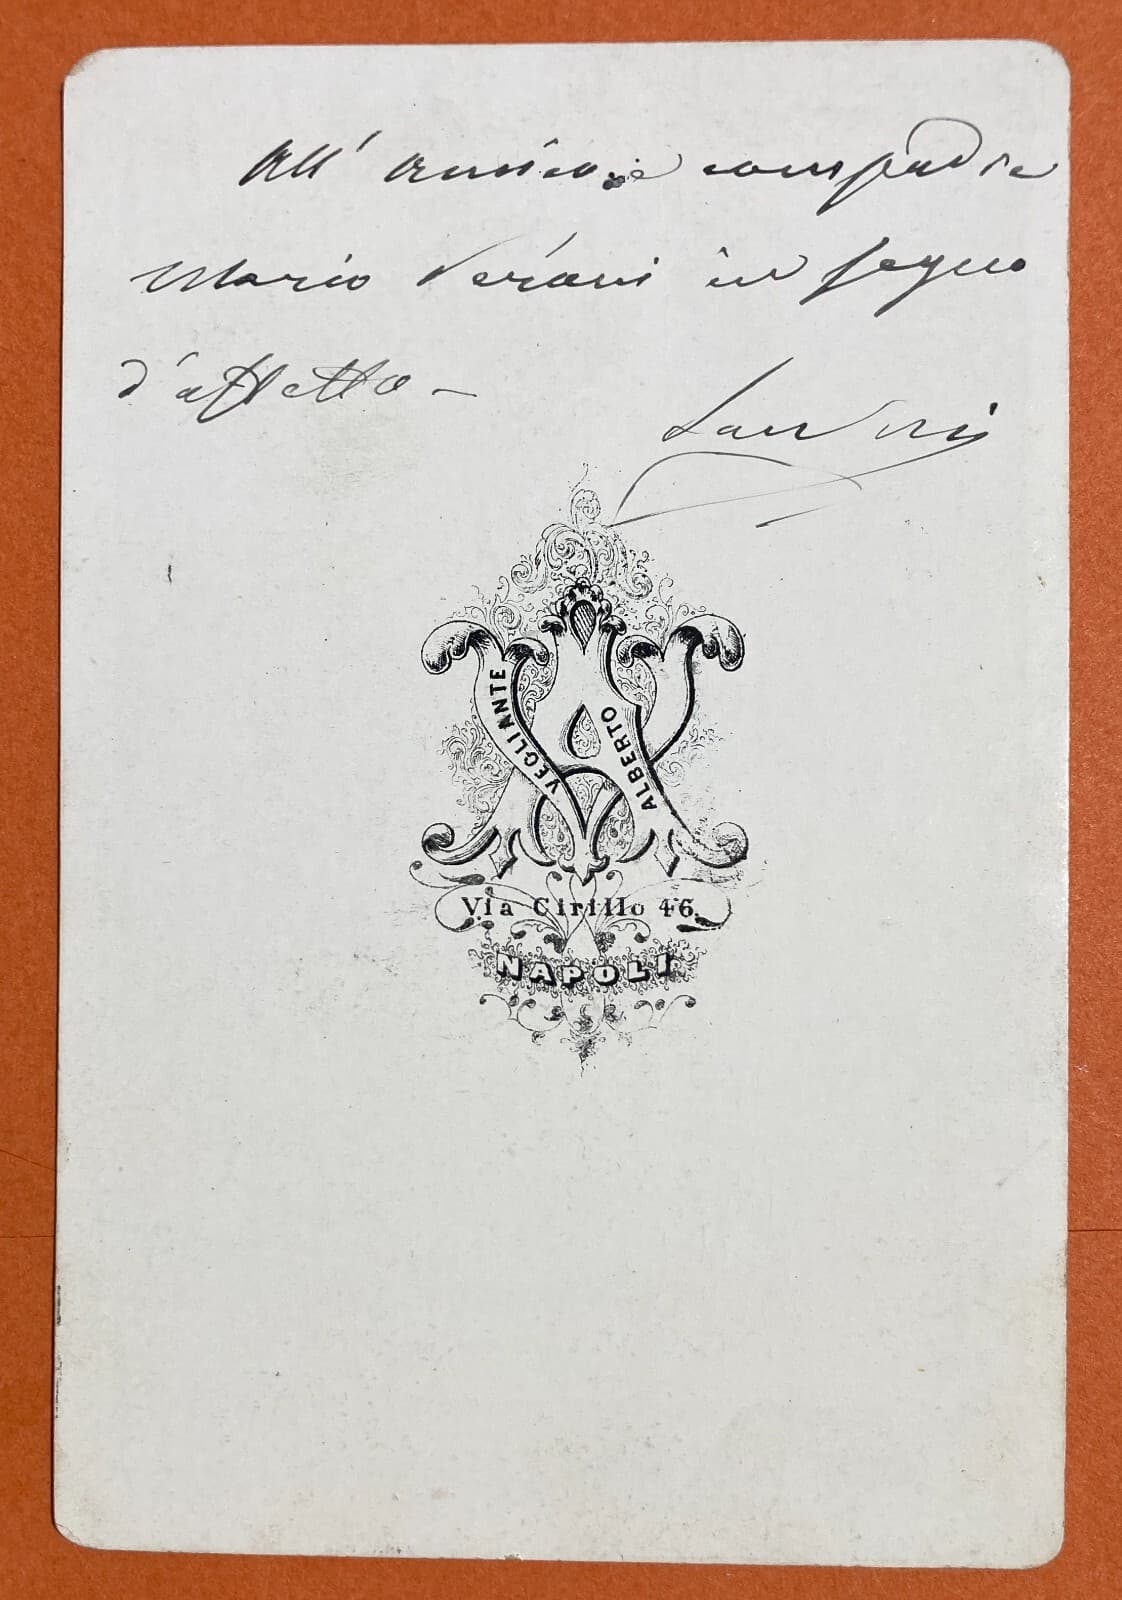 All' amico e compadre
Mario Verani in segno
d'affetto —
VEGLIANTE
ALBERTO
Via Cirillo 46.
NAPOLI